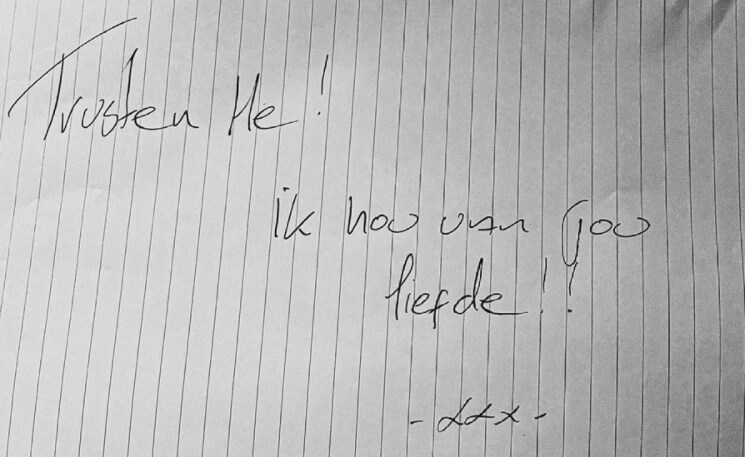 Trusten He!
ik hou van jou
liefde!!
-xxx-